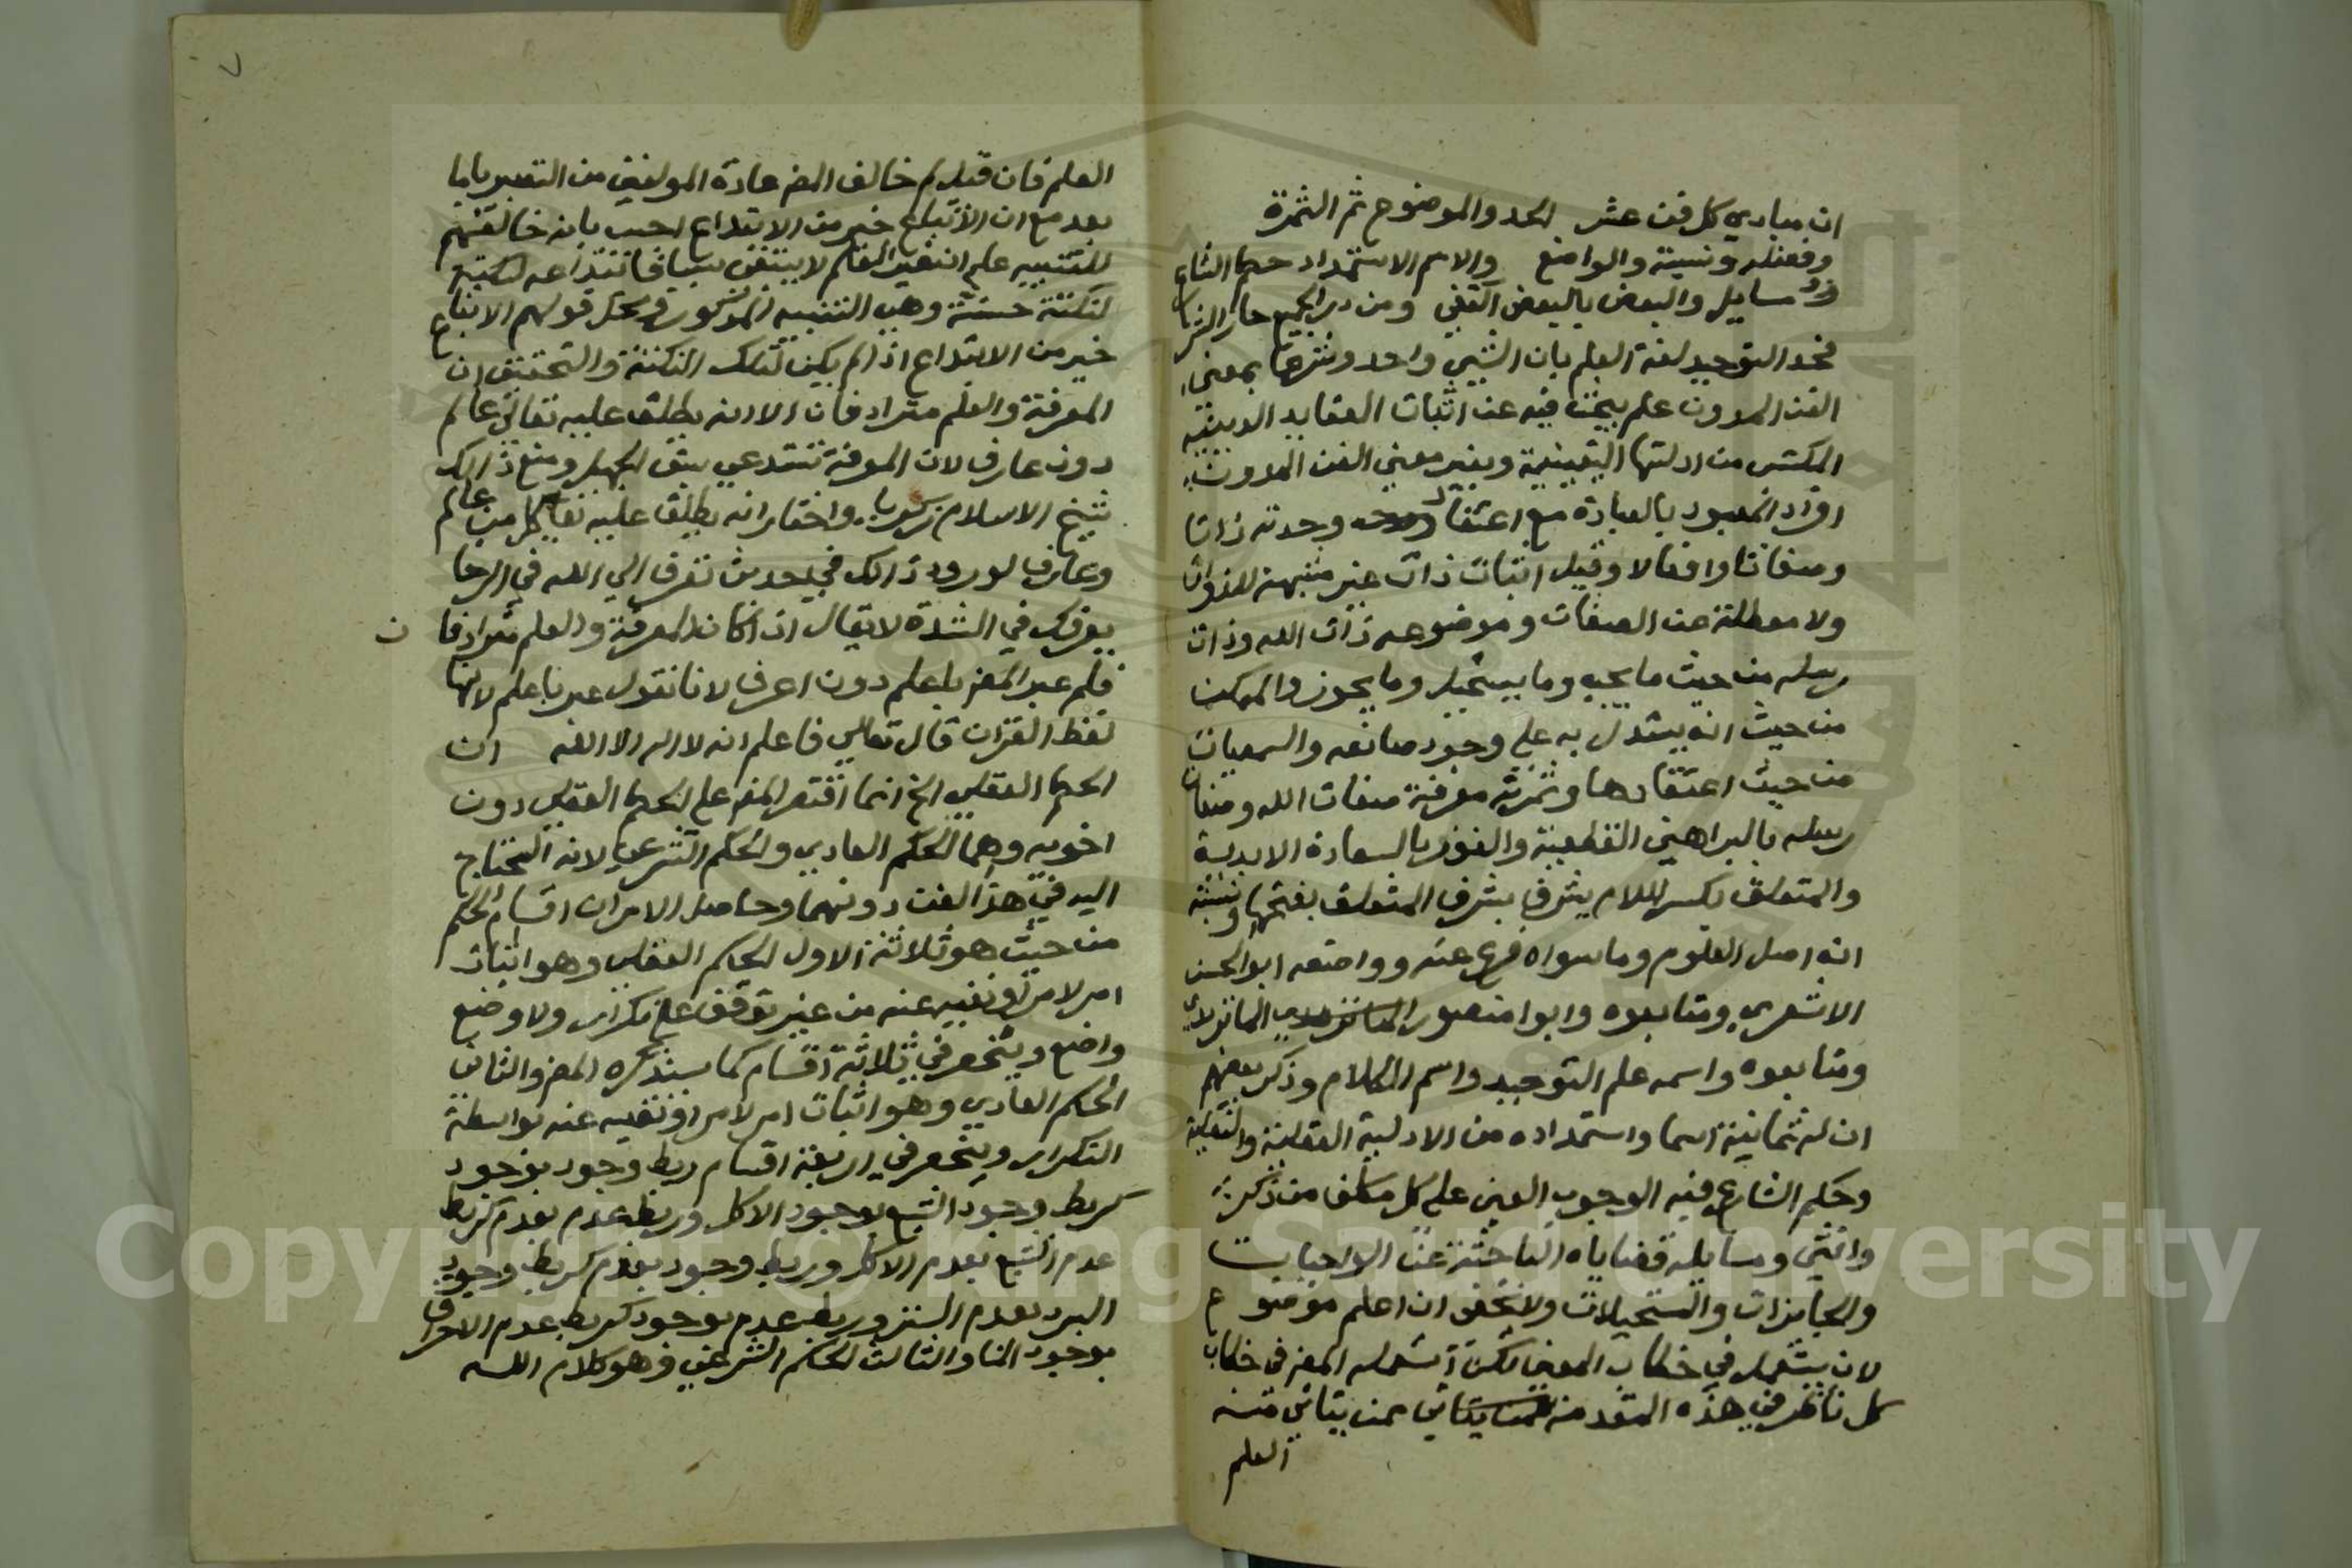 ان مبادي كل فن عشره الحد والموضوع ثم الثمرة
وفضله ونسبة والواضع والاسم الاستمداد حكم الشارع
مسايل والبعض بالبعض اكتفى ومن درى الجميع حاز الشرفا
فحد التوحيد لغة العلم بان الشيي واحد وشرعا بمعنى
الفن المدون علم يبحث فيه عن اثبات العقايد الدينية
المكتسب من ادلتها اليقينية وبغير معنى الفن المدون
افراد المعبود بالعبادة مع اعتقاد وحدته ذاتا
وصفاتا وافعالا وقيل اثبات ذات غير مشبهة للذوات
ولا معطلة عن الصفات وموضوعه ذات الله وذات
رسله من حيث ما يجب وما يستحيل وما يجوز والممكن
من حيث انه يستدل به على وجود صانعه والسمعيات
من حيث اعتقادها وثمرته معرفة صفات الله وصفات
رسله بالبراهين القطعية والفوز بالسعادة الابدية
والمتعلق بكسر اللام يشرف بشرف المتعلق بفتحها ونسبته
انه اصل العلوم وما سواه فرع عنه وواضعه ابو الحسن
الاشعري ومتابعوه وابوا منصور الماتريدي
ومتابعوه واسمه علم التوحيد واسم الكلام وذكر بعضهم
ان له ثمانية اسما واستمداده من الادلية العقلية والنقلية
وحكم الشارع فيه الوجوب العيني على كل مكلف من ذكر
وانثى ومسايله قضاياه الباحثة عن الواجبات
والجايزات والمستحيلات ولا يخفى ان اعلم موضوع
لان يستعمل في خطاب المعين لكن استعمله المص في خطاب
كل ناظر في هذه المقدمة ممن يتاتى منه
العلم
العلم فان قيل لم خالف المص عادة المولفين من التعبير باما
بعد مع ان الاتباع خير من الابتداع اجيب بانه خالفهم
للتنبيه على ان غير العلم لا ينتفى
لنكتة حسنة وهي التنبيه المذكور ومحل قولهم الاتباع
خير من الابتداع اذا لم يكن لتلك النكتة والتحقيق ان
المعرفة والعلم مترادفان الا انه يطلق عليه تعالى عالم
دون عارف لان المعرفة تستدعي سبق الجهل ومنع ذالك
شيخ الاسلام زكريا واختار انه يطلق عليه تعالى كل من عالم
وعارف لورود ذالك في حديث تعرف الى الله في الرخا
يعرفك في الشدة لا يقال ان كان المعرفة والعلم مترادفان
فلم عبر المص باعلم دون اعرف لانا نقول عبر باعلم لانها
لفظ القران قال تعالى فاعلم انه لا اله الا الله ان
الحكم العقلي الخ انما اقتصر المص على الحكم العقلي دون
اخويه وهما الحكم العادي والحكم الشرعي لانه المحتاج
اليه في هذا الفن دونهما وحاصل الامر ان اقسام الحكم
من حيث هو ثلاثة الاول الحكم العقلي وهو اثبات
امر لامر او نفيه عنه من غير توقف على تكرار ولا وضع
واضع وينحصر في ثلاثة اقسام كما سيذكره المص والثاني
الحكم العادي وهو اثبات امر لامر او نفيه عنه بواسطة
التكرار وينحصر في اربعة اقسام ربط وجود بوجود
كربط وجود الشبع بوجود الاكل وربط عدم بعدم كربط
عدم الشبع بعدم الاكل وربط وجود بعدم كربط وجود
البرد بعدم الستر وربط عدم بوجود كربط عدم الاحراق
بوجود الما والثالث الحكم الشرعي وهو كلام الله